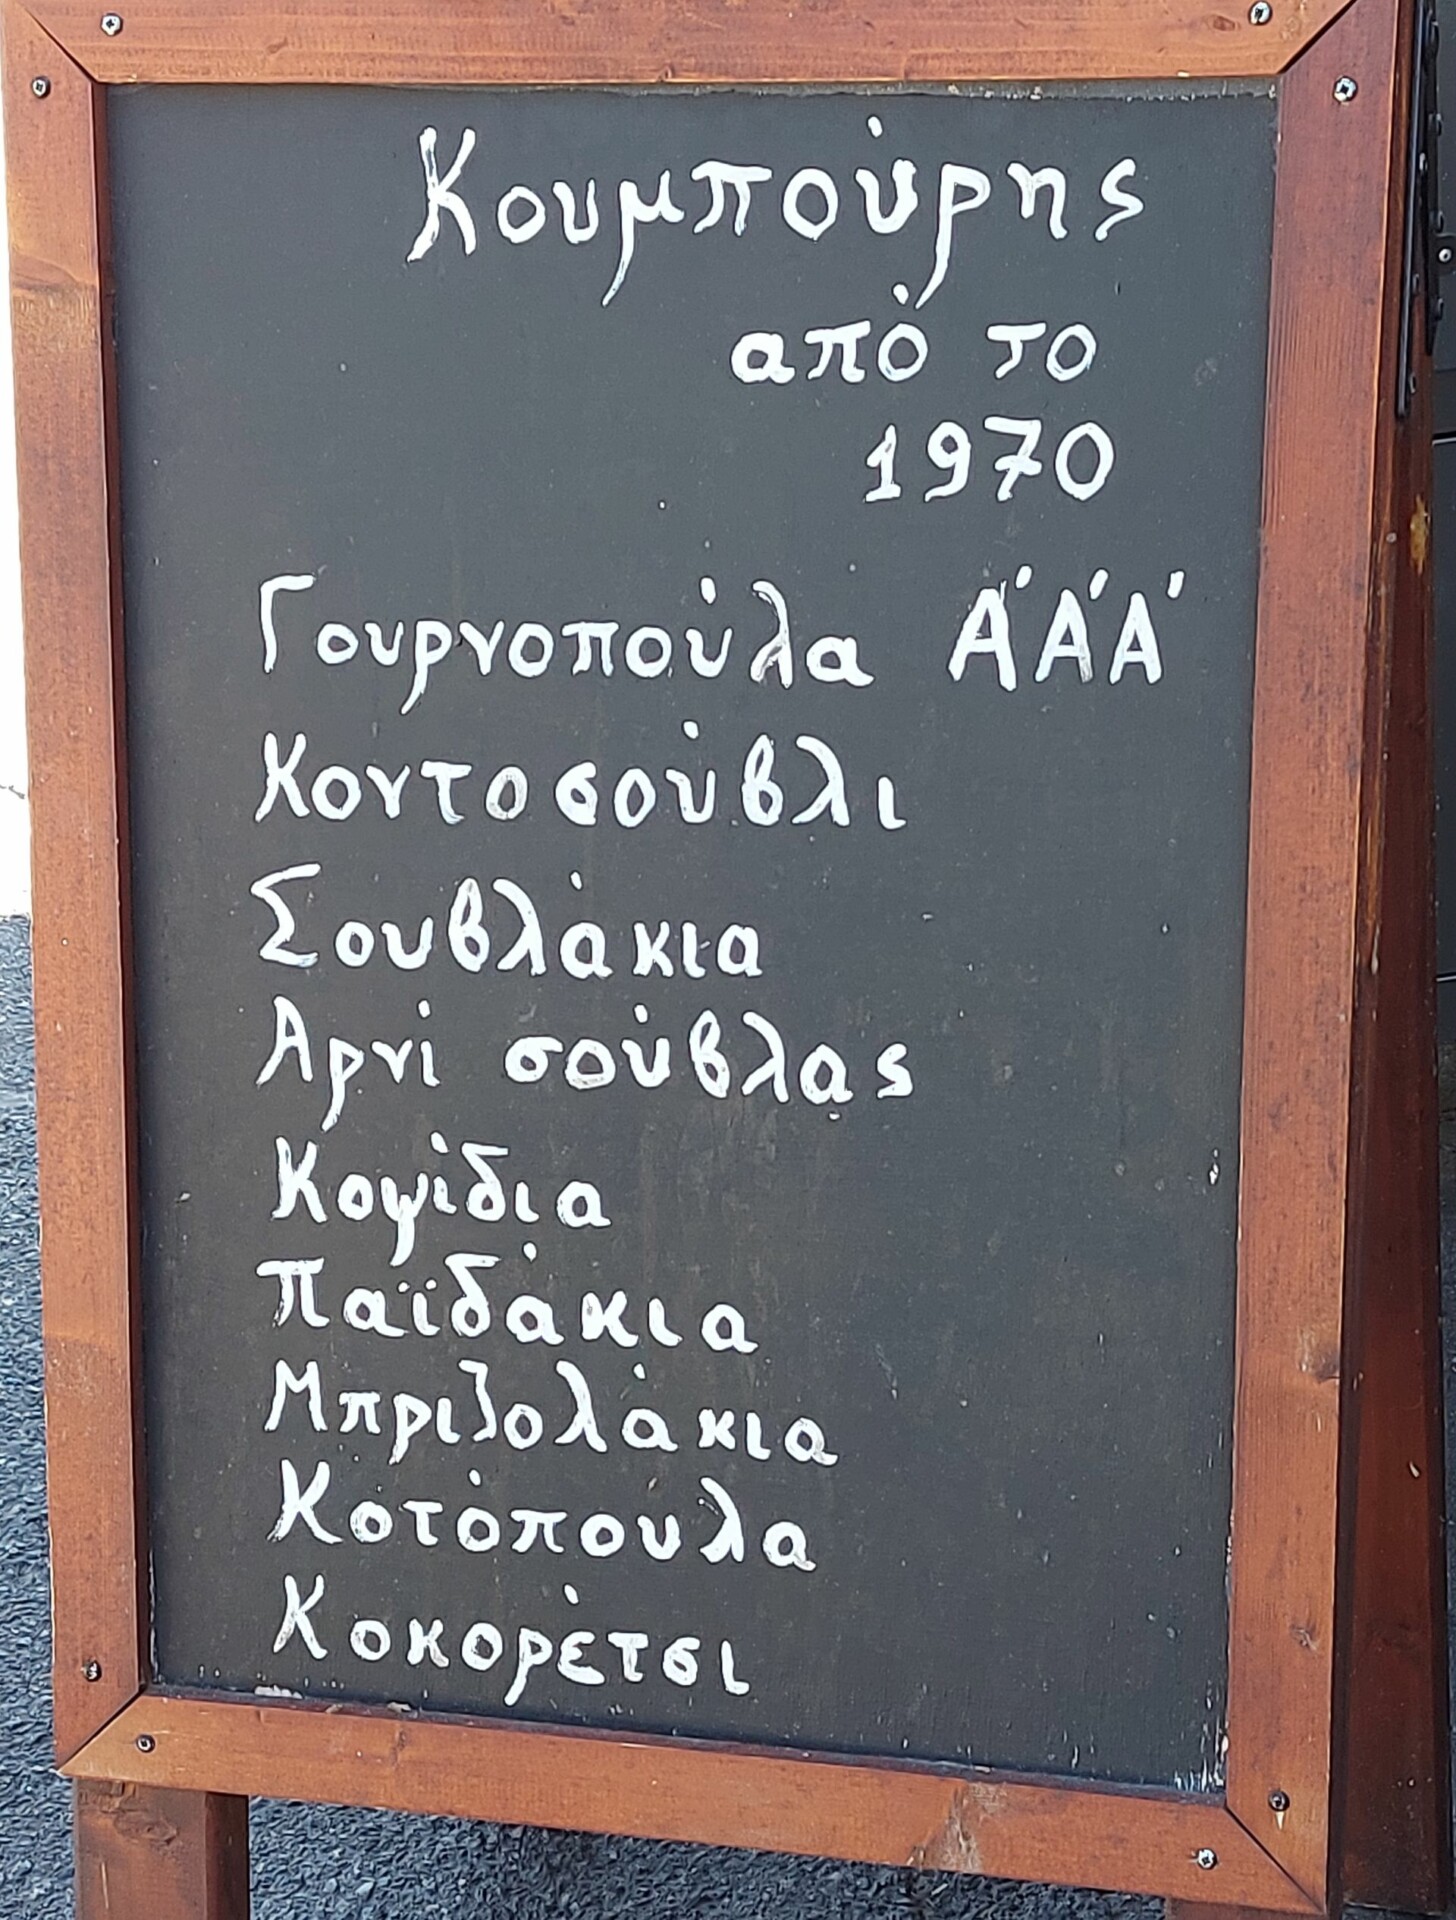 Κουμπούρης
από το
1970
Γουρνοπούλα Α'Α'Α'
Κοντοσούβλι
Σουβλάκια
Αρνί σούβλας
Κοψίδια
Παϊδάκια
Μπριζολάκια
Κοτόπουλα
Κοκορέτσι